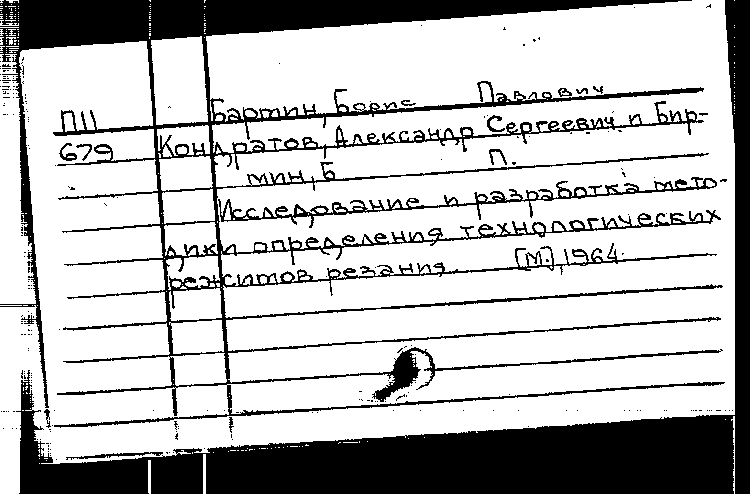 П11 Бармин, Борис Павлович
679 Кондратов, Александр Сергеевич и Бар-
мин, Б П.
Исследование и разработка мето-
дики определения технологических
режимов резания. [М.], 1964.